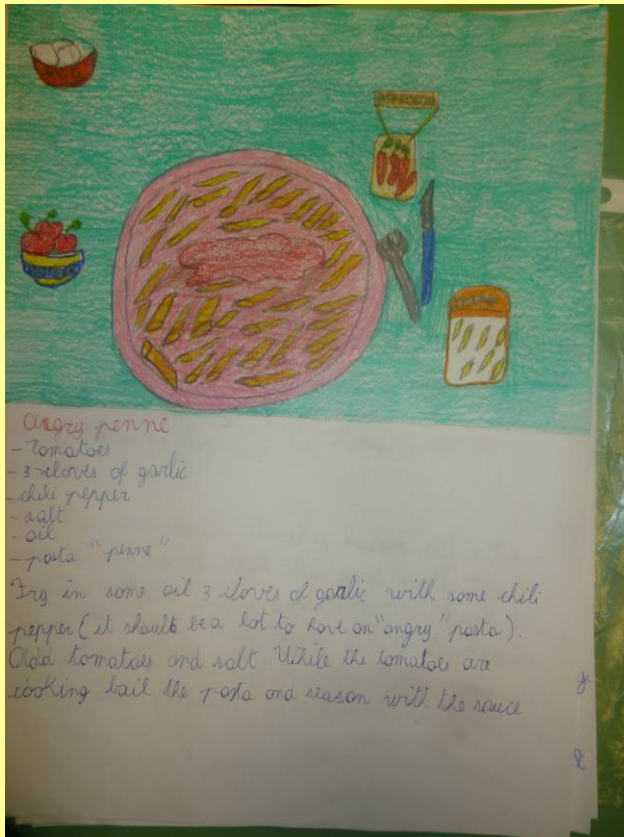 Angry penne
- Tomatoes
- 3 cloves of garlic
- chili pepper
- salt
- oil
- pasta "penne"
Fry in some oil 3 cloves of garlic with some chili
pepper (it should be a lot to have an "angry" pasta).
Add tomatoes and salt. While the tomatoes are
cooking bail the pasta and season with the sauce